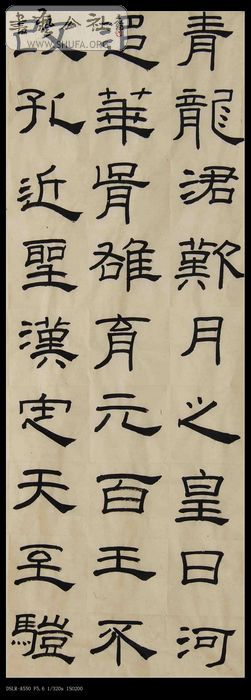 書法公社
WWW.SHUFA.ORG
青龍涒歎月之皇日河
華胥雄育元百王不
改孔近聖漢定天至
DSLR-A550 F5.6 1/320s ISO200